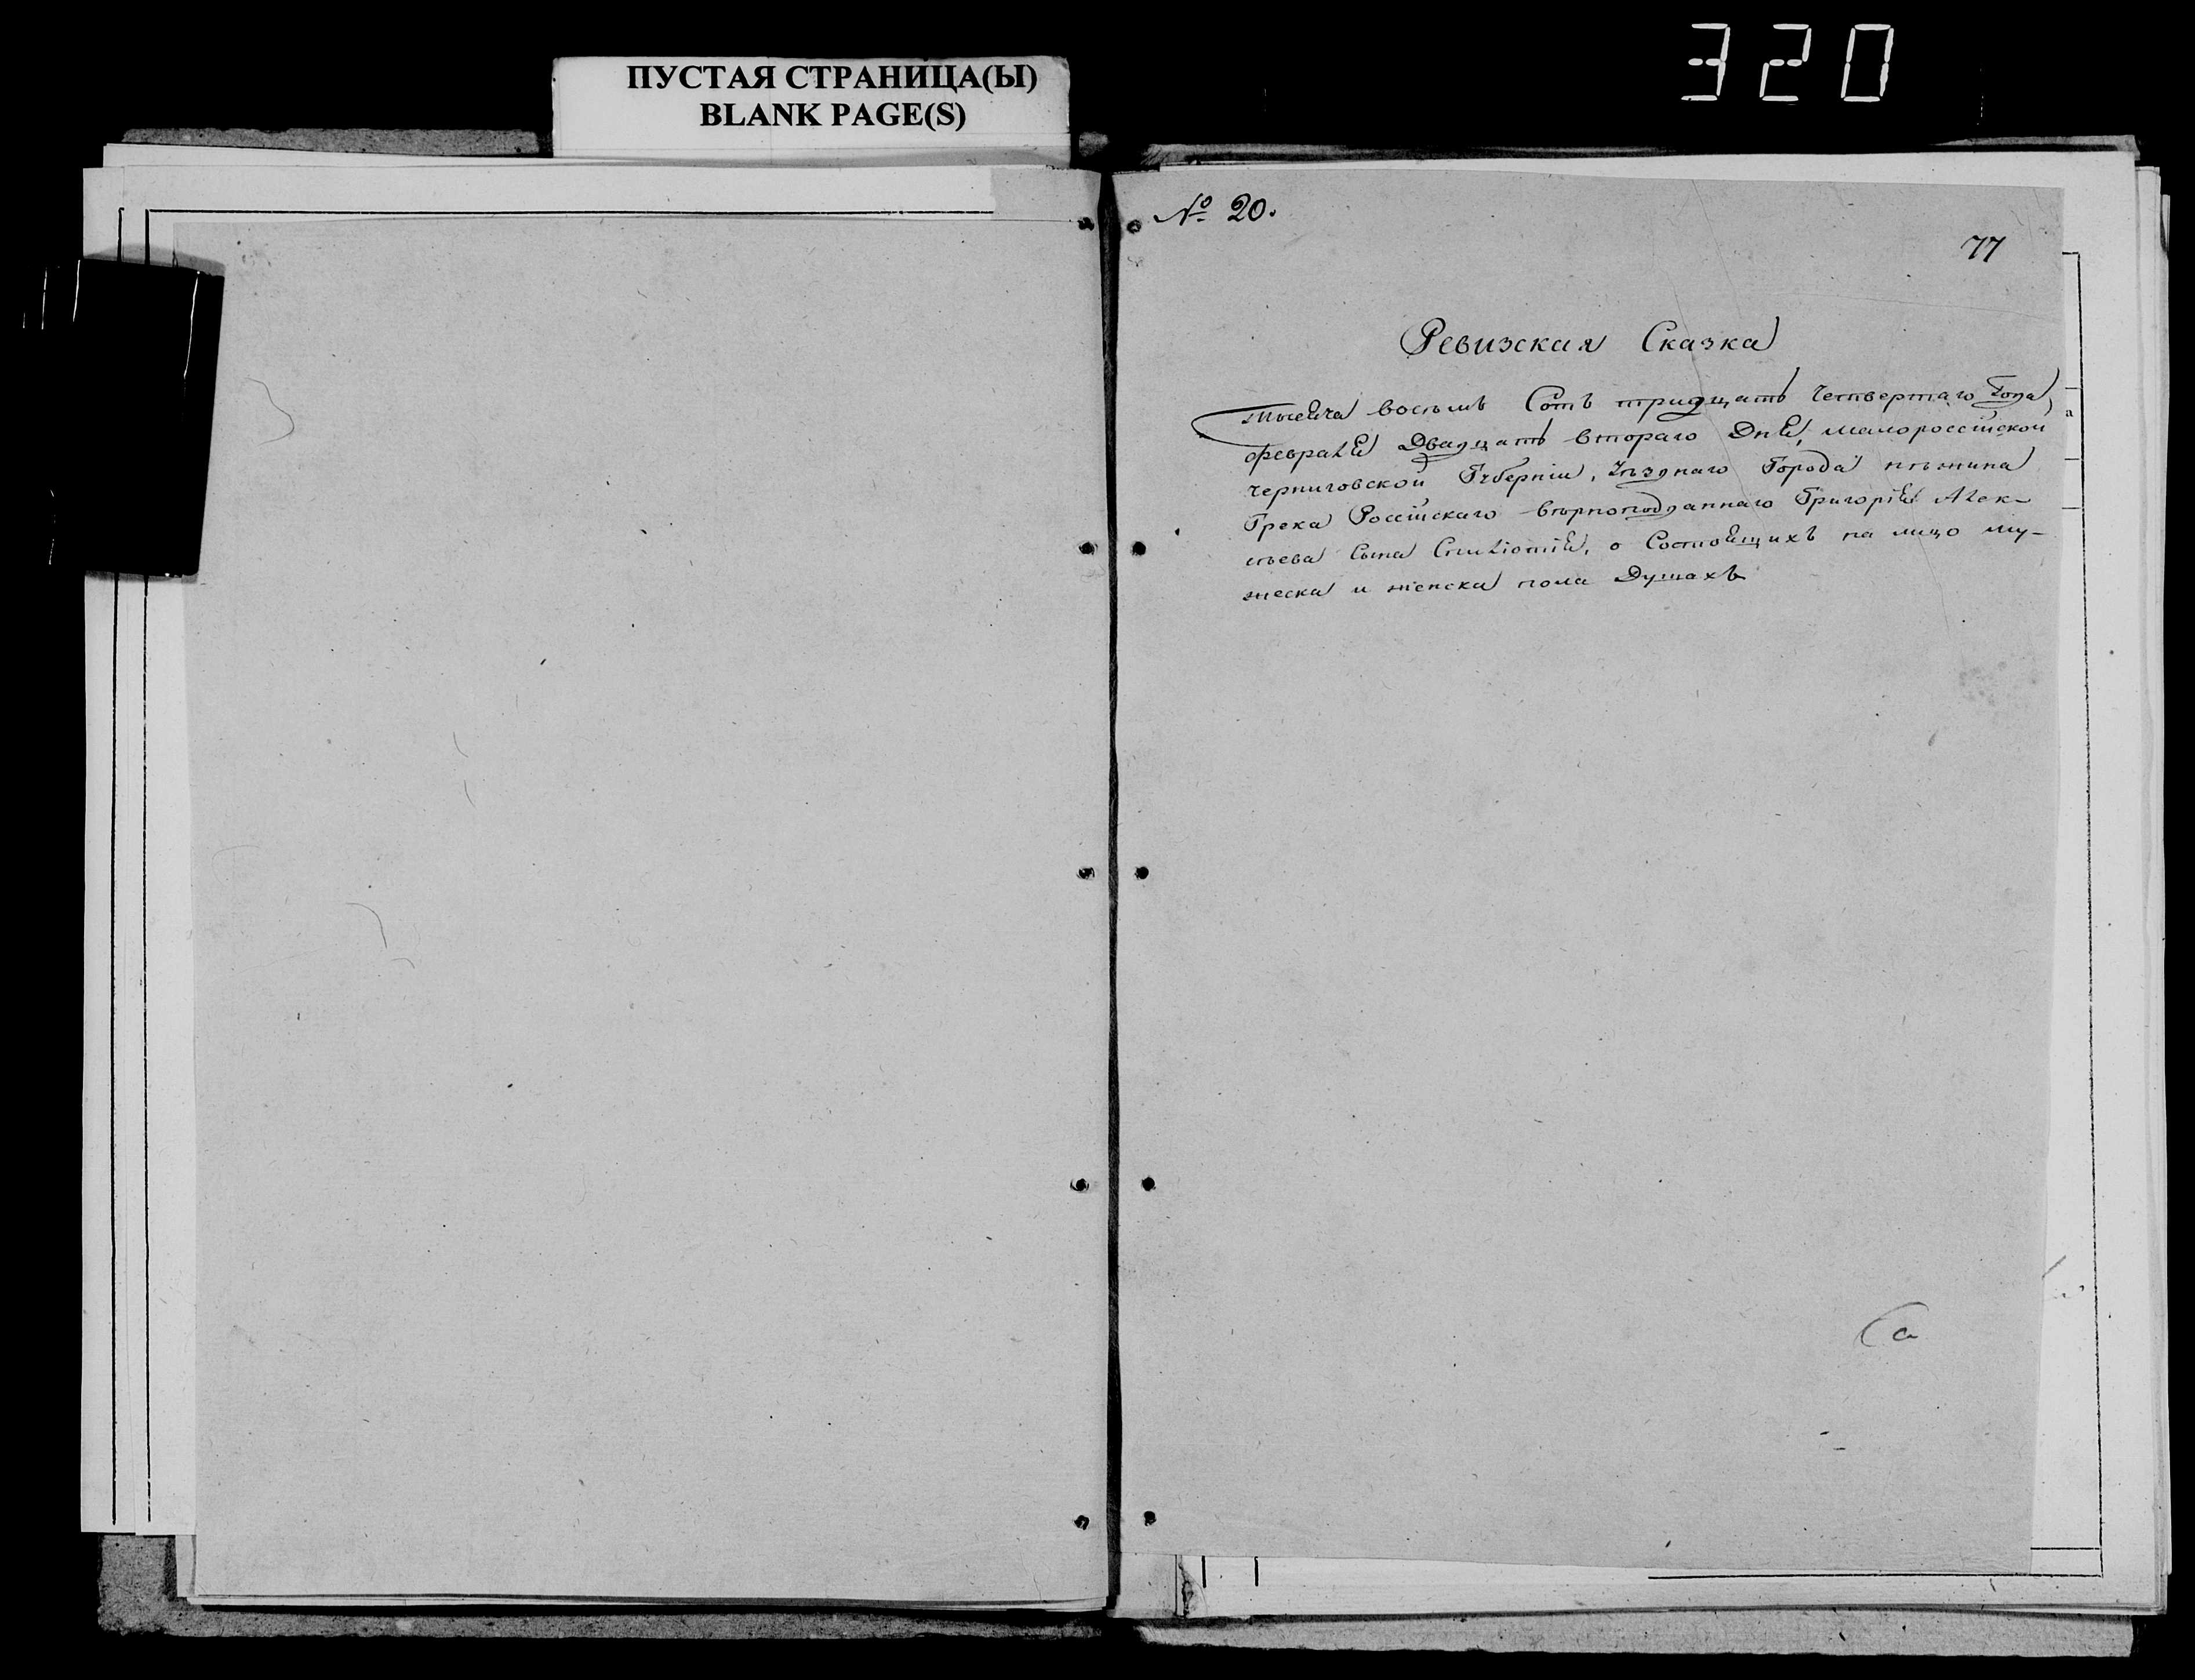 ПУСТАЯ СТРАНИЦА(Ы)
BLANK PAGE(S)
320
№ 20.
77
Ревизская Сказка
Тысяча восемь Сотъ тридцать Четвертаго Года,
февраля Двадцать втораго Дня, малороссійской
черниговской Губерніи, Уѣзднаго Города нѣжина
Грека Россійскаго вѣрноподданнаго Григорія Алек-
сѣева Сына о Состоящихъ на лицо му-
жеска и женска пола Душахъ